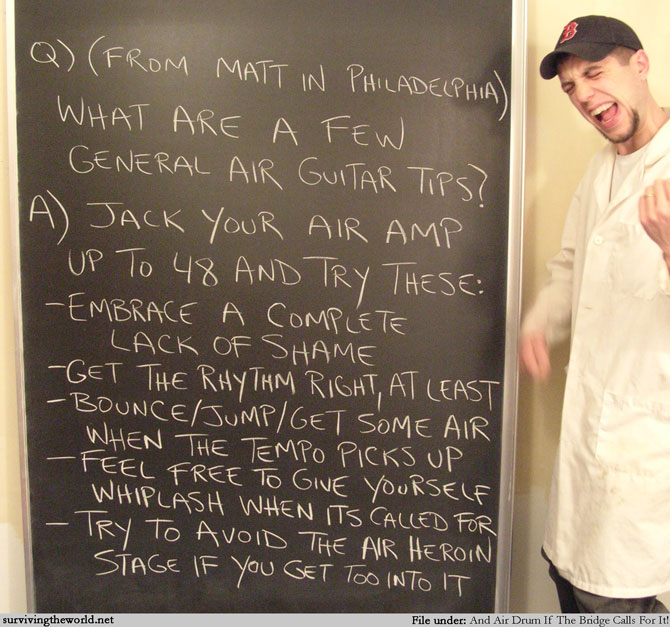 Q) (FROM MATT IN PHILADELPHIA)
WHAT ARE A FEW
GENERAL AIR GUITAR TIPS?
A) JACK YOUR AIR AMP
UP TO 48 AND TRY THESE:
-EMBRACE A COMPLETE
LACK OF SHAME
-GET THE RHYTHM RIGHT, AT LEAST
-BOUNCE/JUMP/GET SOME AIR
WHEN THE TEMPO PICKS UP
-FEEL FREE TO GIVE YOURSELF
WHIPLASH WHEN ITS CALLED FOR
-TRY TO AVOID THE AIR HEROIN
STAGE IF YOU GET TOO INTO IT
B
survivingtheworld.net
File under: And Air Drum If The Bridge Calls For It!